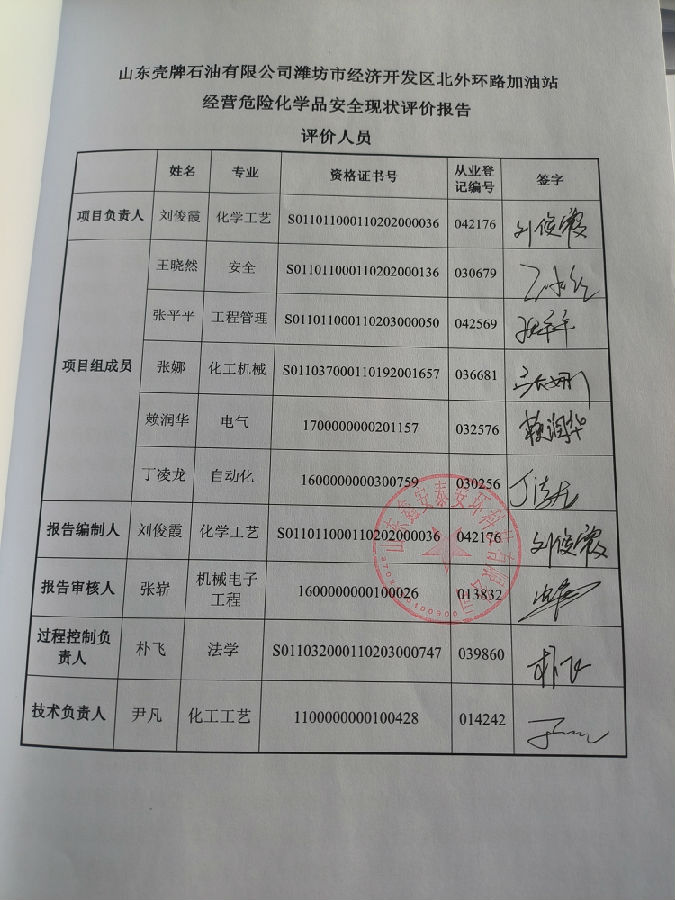 山东壳牌石油有限公司潍坊市经济开发区北外环路加油站
经营危险化学品安全现状评价报告
评价人员
姓名 专业 资格证书号 从业登记编号 签字
项目负责人 刘俊霞 化学工艺 S011011000110202000036 042176 刘俊霞
项目组成员
王晓然 安全 S011011000110202000136 030679
张平平 工程管理 S011011000110203000050 042569 张平平
张娜 化工机械 S011037000110192001657 036681 张娜
赖润华 电气 1700000000201157 032576 赖润华
丁凌龙 自动化 1600000000300759 030256 丁凌龙
报告编制人 刘俊霞 化学工艺 S011011000110202000036 042176 刘俊霞
报告审核人 张崭 机械电子工程 1600000000100026 013832
过程控制负责人 朴飞 法学 S011032000110203000747 039860 朴飞
技术负责人 尹凡 化工工艺 1100000000100428 014242